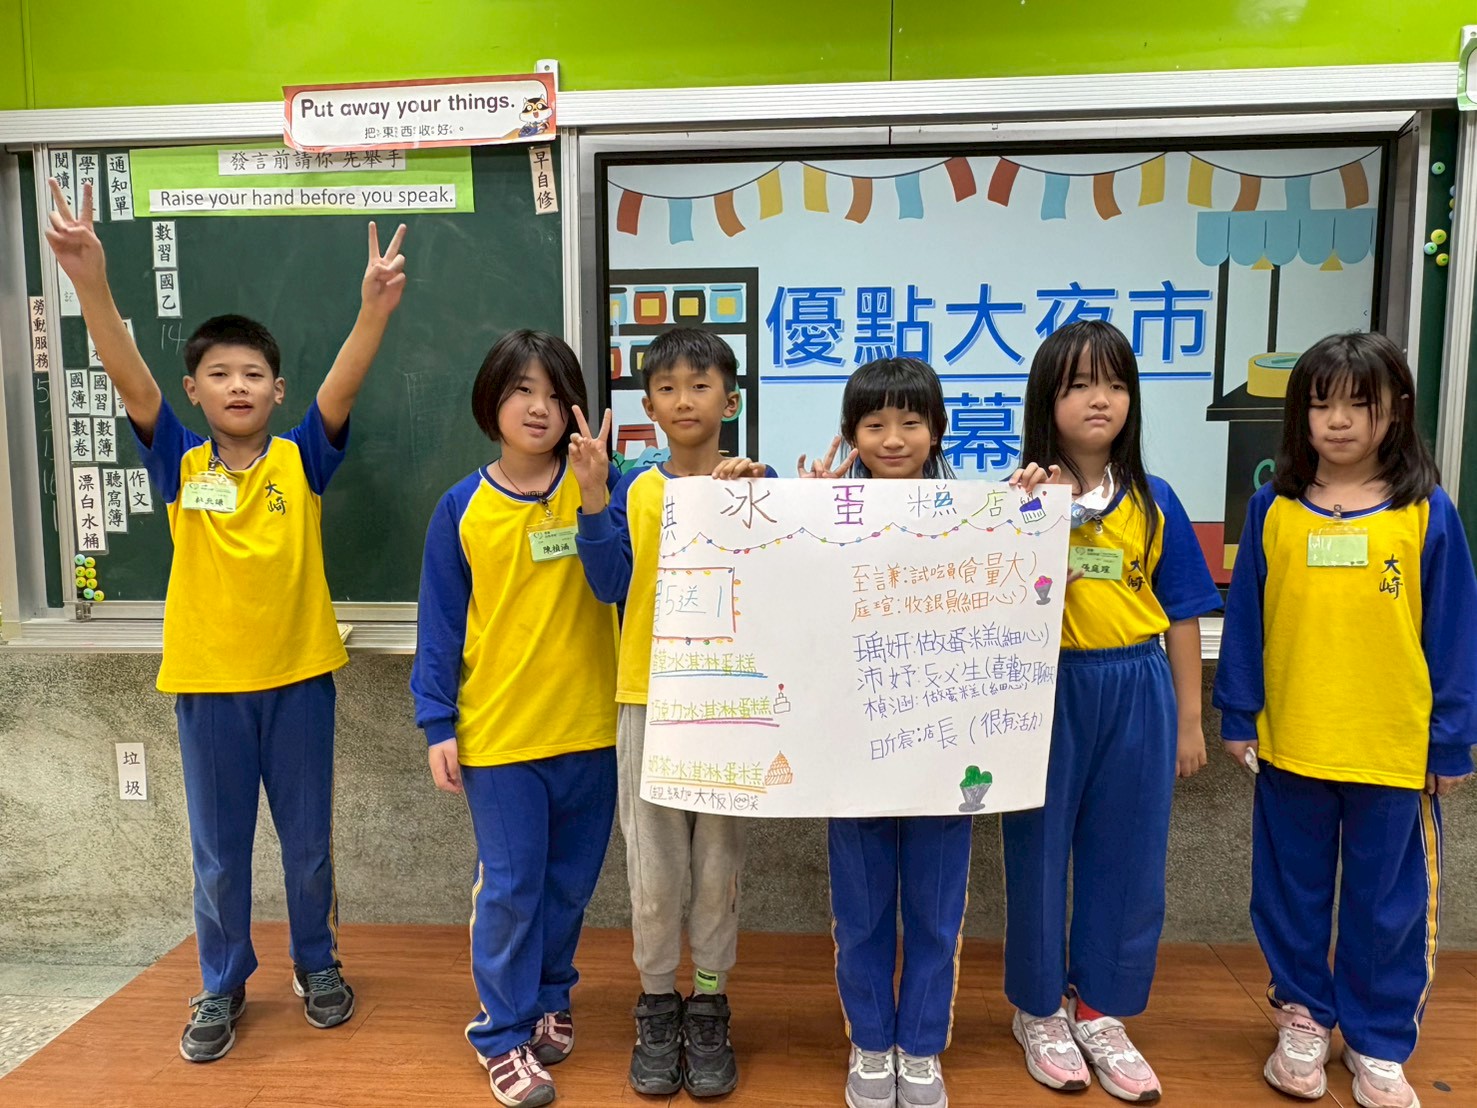 Put away your things.
把東西收好。
發言前請你先舉手
Raise your hand before you speak.
閱讀
通知單
早自修
數習
國乙
14
勞動服務
國簿
國習
數卷
數簿
漂白水桶
聽寫簿
作文
垃圾
優點大夜市
幕
大崎
陳楨涵
張庭瑄
大崎
大崎
淇冰蛋糕店
5送1
草冰淇淋蛋糕
巧克力冰淇淋蛋糕
奶茶冰淇淋蛋糕
大板)笑
至謙:試吃員(食量大)
庭瑄:收銀員(細心)
瑀妍:做蛋糕(細心)
沛妤:ㄈㄨˊ生(喜歡聊天)
楨涵:做蛋糕(細心)
昕宸:店長(很有活力)